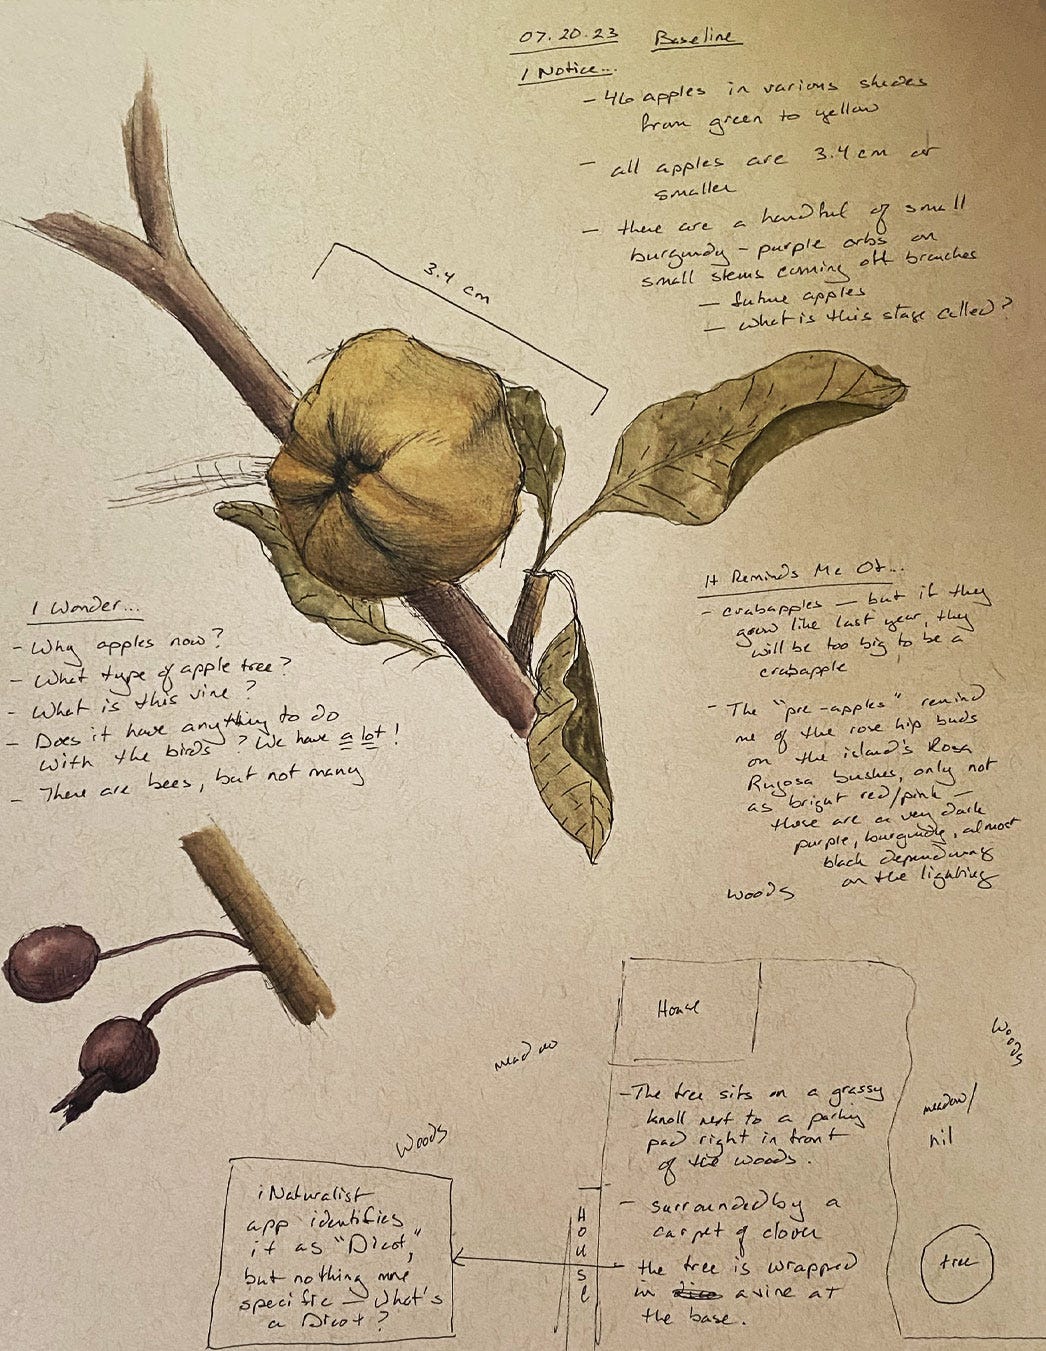 07.20.23 Baseline
I Notice...
- 46 apples in various shades
from green to yellow
- all apples are 3.4 cm or
smaller
- there are a handful of small
burgundy - purple orbs on
small stems coming off branches
- future apples
- what is this stage called?
3.4 cm
It Reminds Me Of...
- crabapples - but if they
grow like last year, they
will be too big to be a
crabapple
- The "pre-apples" remind
me of the rose hip buds
on the island's Rosa
Rugosa bushes, only not
as bright red/pink -
these are a very dark
purple, burgundy, almost
black depending
on the lighting
I Wonder...
- Why apples now?
- What type of apple tree?
- What is this vine?
- Does it have anything to do
with the birds? We have a lot!
- There are bees, but not many
woods
House
meadow
woods
meadow/
nil
Woods
tree
House
- The tree sits on a grassy
knoll next to a parking
pad right in front
of the woods.
- surrounded by a
carpet of clover
the tree is wrapped
in a vine at
the base.
iNaturalist
app identifies
it as "Dicot,"
but nothing more
specific - What's
a Dicot?